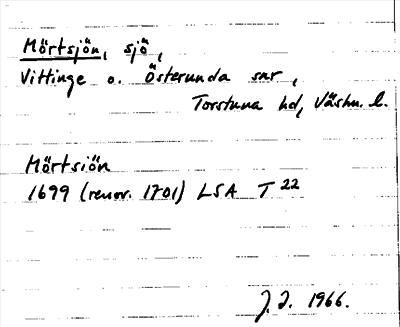 Mörtsjön, sjö,
Vittinge o. Österunda snr,
Torstuna hd, Västm. l.
Mörtsiön
1699 (renov. 1701) LSA T 22
J. J. 1966.